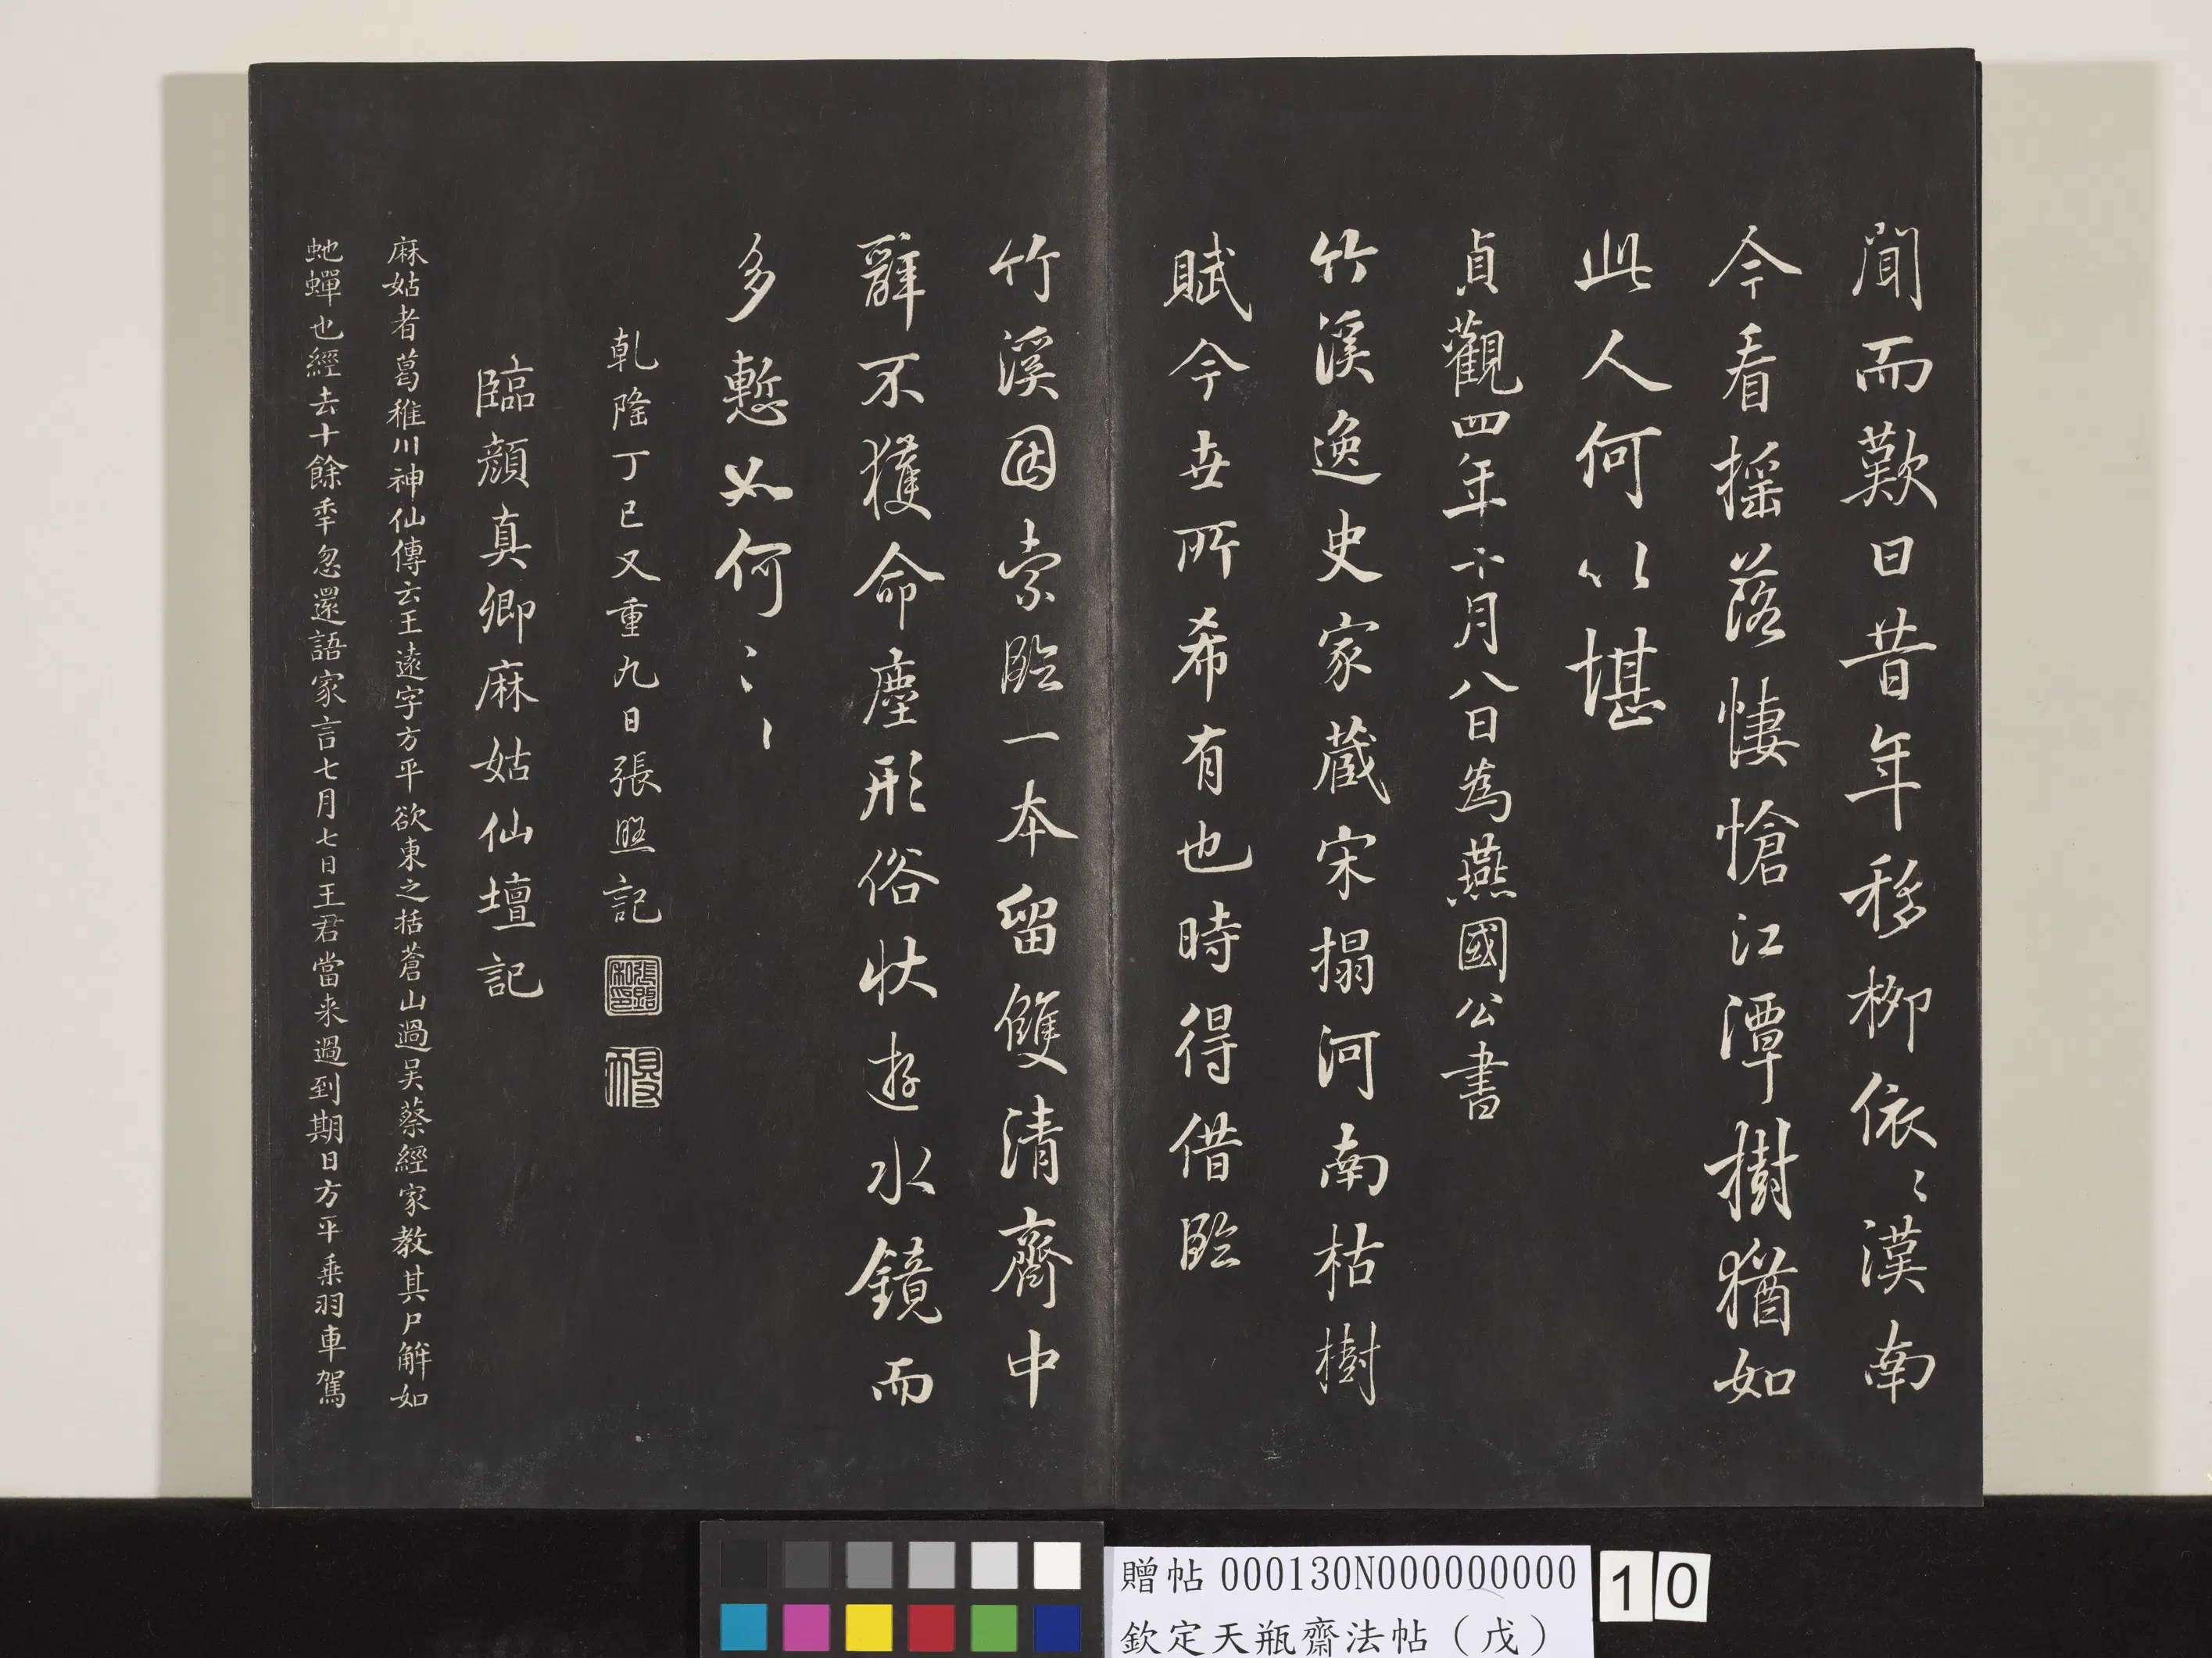 聞而歎曰昔年移柳依〻漢南
今看搖落悽愴江潭樹猶如
此人何以堪
貞觀四年十月八日為燕國公書
竹溪逸史家藏宋搨河南枯樹
賦今世所希有也時得借臨
竹溪因索臨一本留雙清齋中
辭不獲命塵形俗狀遊水鏡而
多慙如何〻〻
乾隆丁巳又重九日張照記
臨顏真卿麻姑仙壇記
麻姑者葛稚川神仙傳云王遠字方平欲東之括蒼山過吳蔡經家教其尸解如
虵蟬也經去十餘秊忽還語家言七月七日王君當来過到期日方平乘羽車駕
贈帖 000130N000000000
欽定天瓶齋法帖（戊）
10